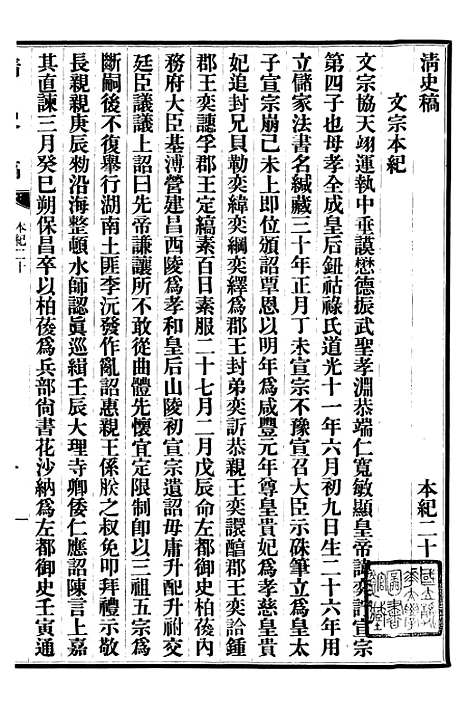 清史稿
文宗本紀 本紀二十
文宗協天翊運執中垂謨懋德振武聖孝淵恭端仁寬敏顯皇帝諱奕詝宣宗
第四子也母孝全成皇后鈕祜祿氏道光十一年六月初九日生二十六年用
立儲家法書名緘藏三十年正月丁未宣宗不豫宣召大臣示硃筆立為皇太
子宣宗崩己未上即位頒詔覃恩以明年為咸豐元年尊皇貴妃為孝慈皇貴
妃追封兄貝勒奕緯奕綱奕繹為郡王封弟奕訢恭親王奕譞醇郡王奕詥鍾
郡王奕譓孚郡王定縞素百日素服二十七月二月戊辰命左都御史柏葰內
務府大臣基溥營建昌西陵為孝和皇后山陵初宣宗遺詔毋庸升配升祔交
廷臣議議上詔曰先帝謙讓所不敢從曲體先懷宜定限制即以三祖五宗為
斷嗣後不復舉行湖南土匪李沅發作亂詔惠親王係朕之叔免叩拜禮示敬
長親親庚辰勑沿海整頓水師認眞巡緝壬辰大理寺卿倭仁應詔陳言上嘉
其直諫三月癸巳朔保昌卒以柏葰為兵部尚書花沙納為左都御史壬寅通
清史稿 本紀二十 一